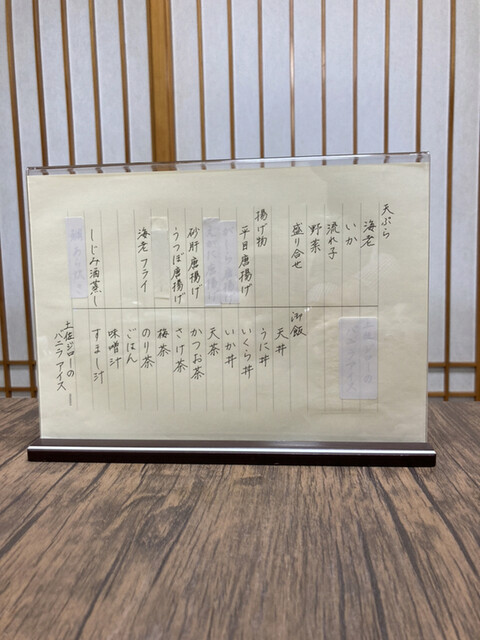 天ぷら
海老
いか
流れ子
野菜
盛り合せ
揚げ物
平目唐揚げ
砂肝唐揚げ
うつぼ唐揚げ
海老フライ
しじみ酒蒸し
御飯
天丼
うに丼
いくら丼
いか丼
天茶
かつお茶
さけ茶
梅茶
のり茶
ごはん
味噌汁
すまし汁
土佐ジローの
バニラアイス